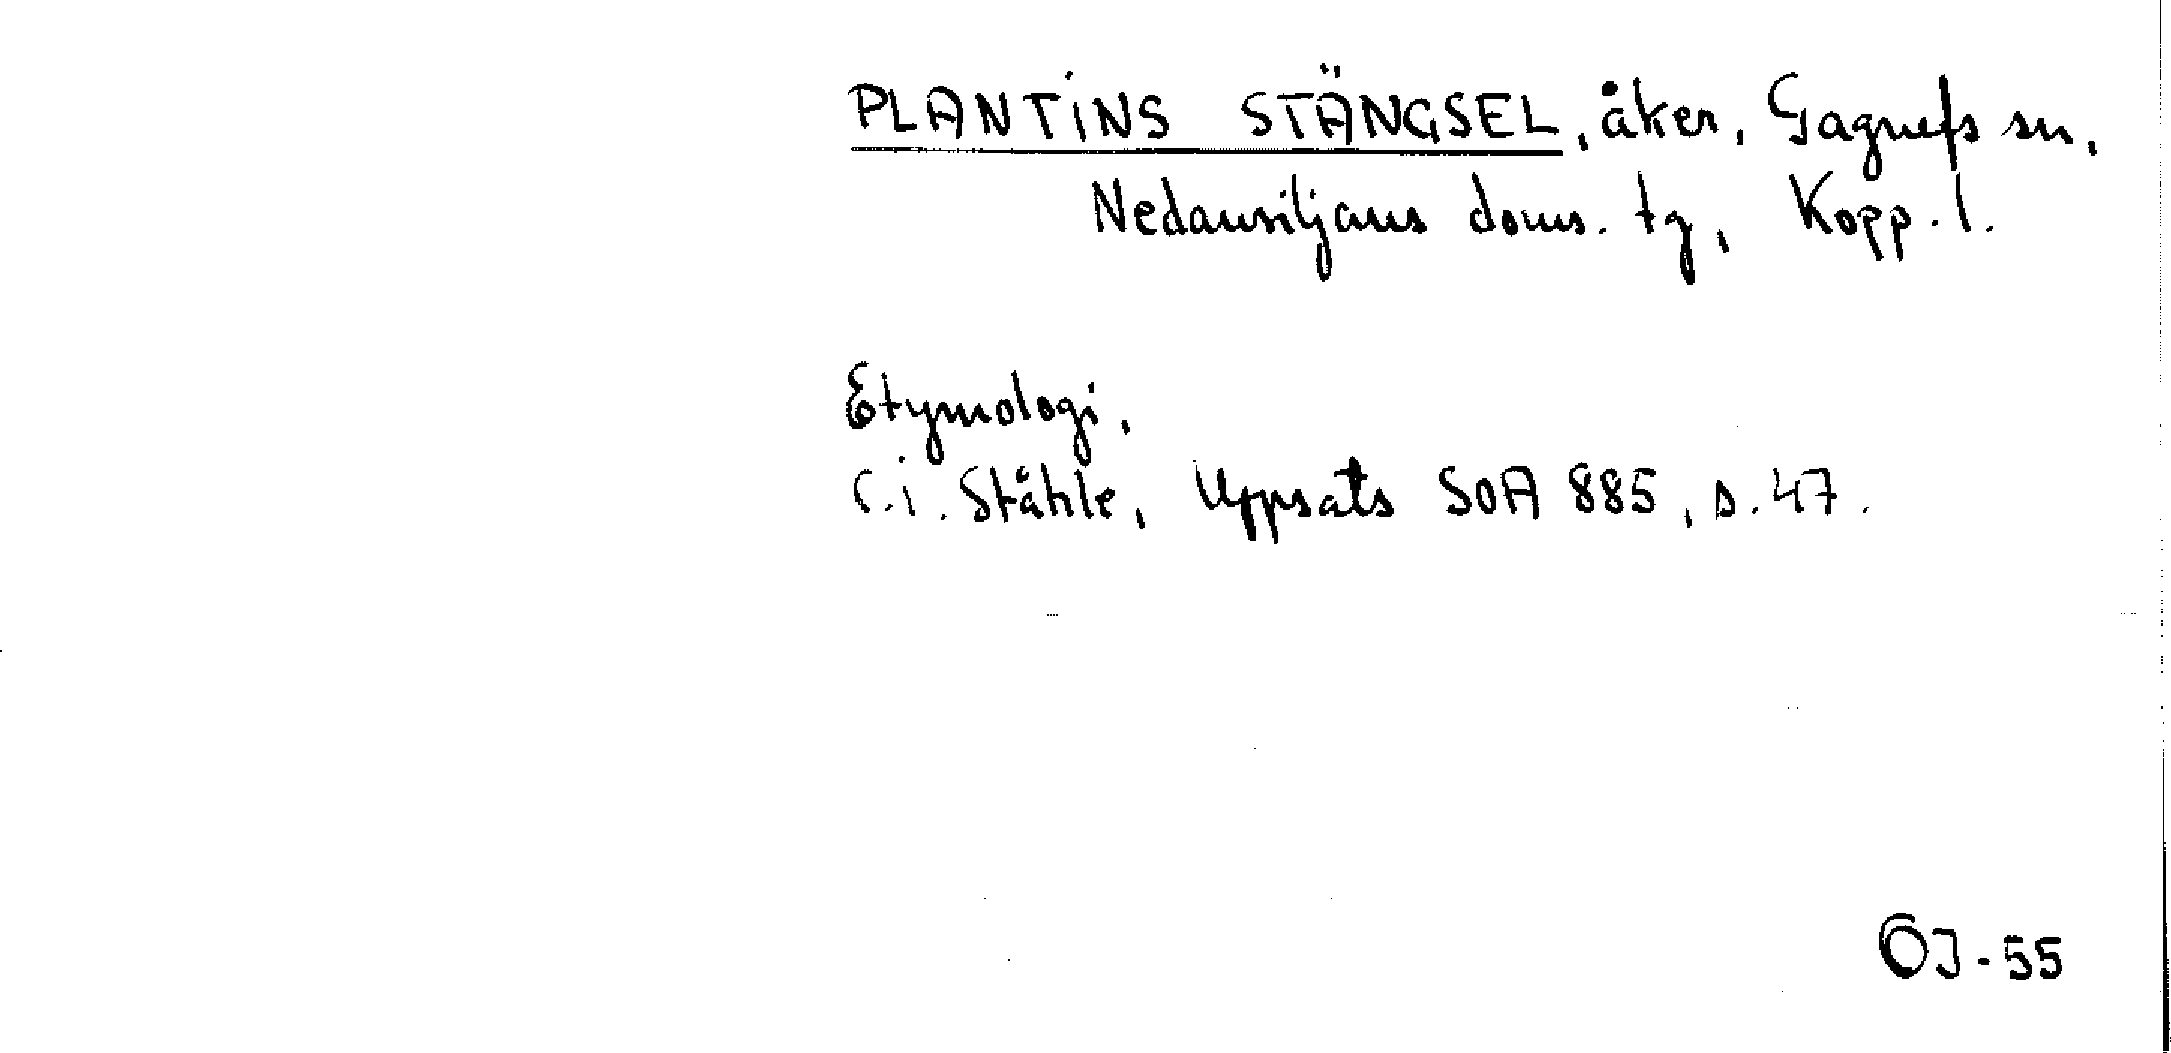 PLANTINS STÄNGSEL, åker, Gagnefs sn,
Nedansiljans doms. tg, Kopp. l.
Etymologi,
C.I. Ståhle, Uppsats SOA 885, s. 47.
OJ-55